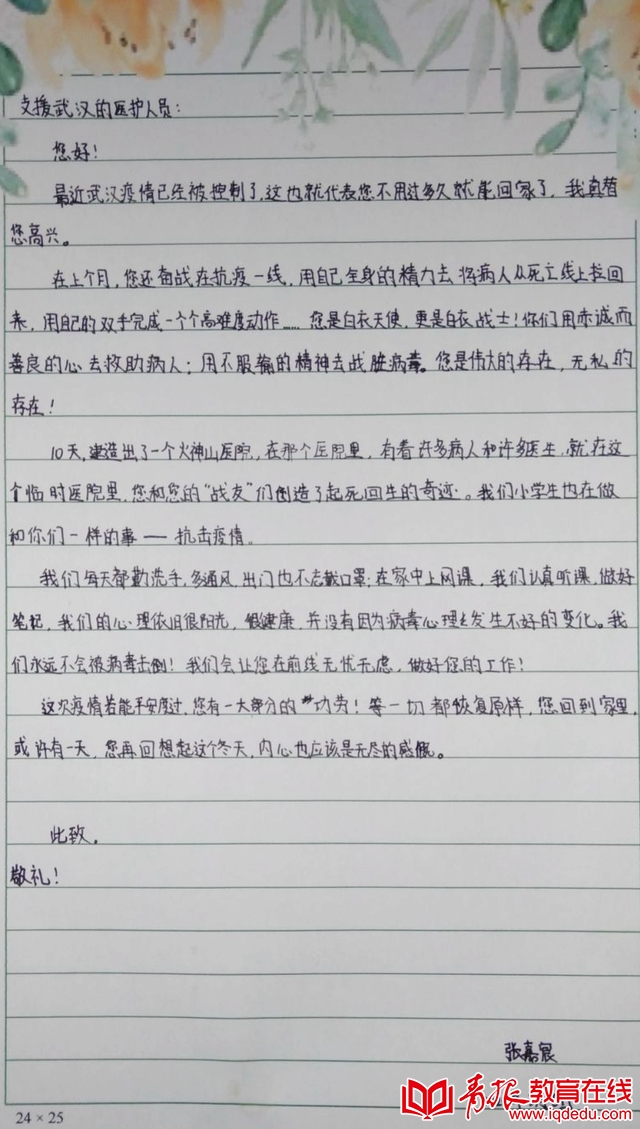 支援武汉的医护人员：
您好！
最近武汉疫情已经被控制了，这也就代表您不用过多久就能回家了，我真替
您高兴。
在上个月，您还奋战在抗疫一线，用自己全身的精力去将病人从死亡线上拉回
来，用自己的双手完成一个个高难度动作……您是白衣天使，更是白衣战士！你们用赤诚而
善良的心去救助病人；用不服输的精神去战胜病毒。您是伟大的存在，无私的
存在！
10天，建造出了一个火神山医院，在那个医院里，有着许多病人和许多医生，就在这
个临时医院里，您和您的“战友”们创造了起死回生的奇迹。我们小学生也在做
和你们一样的事——抗击疫情。
我们每天都勤洗手，多通风，出门也不忘戴口罩；在家中上网课，我们认真听课，做好
笔记，我们的心理依旧很阳光，很健康，并没有因为病毒心理上发生不好的变化。我
们永远不会被病毒击倒！我们会让您在前线无忧无虑，做好您的工作！
这次疫情若能平安度过，您有一大部分的功劳！等一切都恢复原样，您回到家里，
或许有一天，您再回想起这个冬天，内心也应该是无尽的感慨。
此致，
敬礼！
张嘉宸
24×25
青报教育在线
www.iqdedu.com